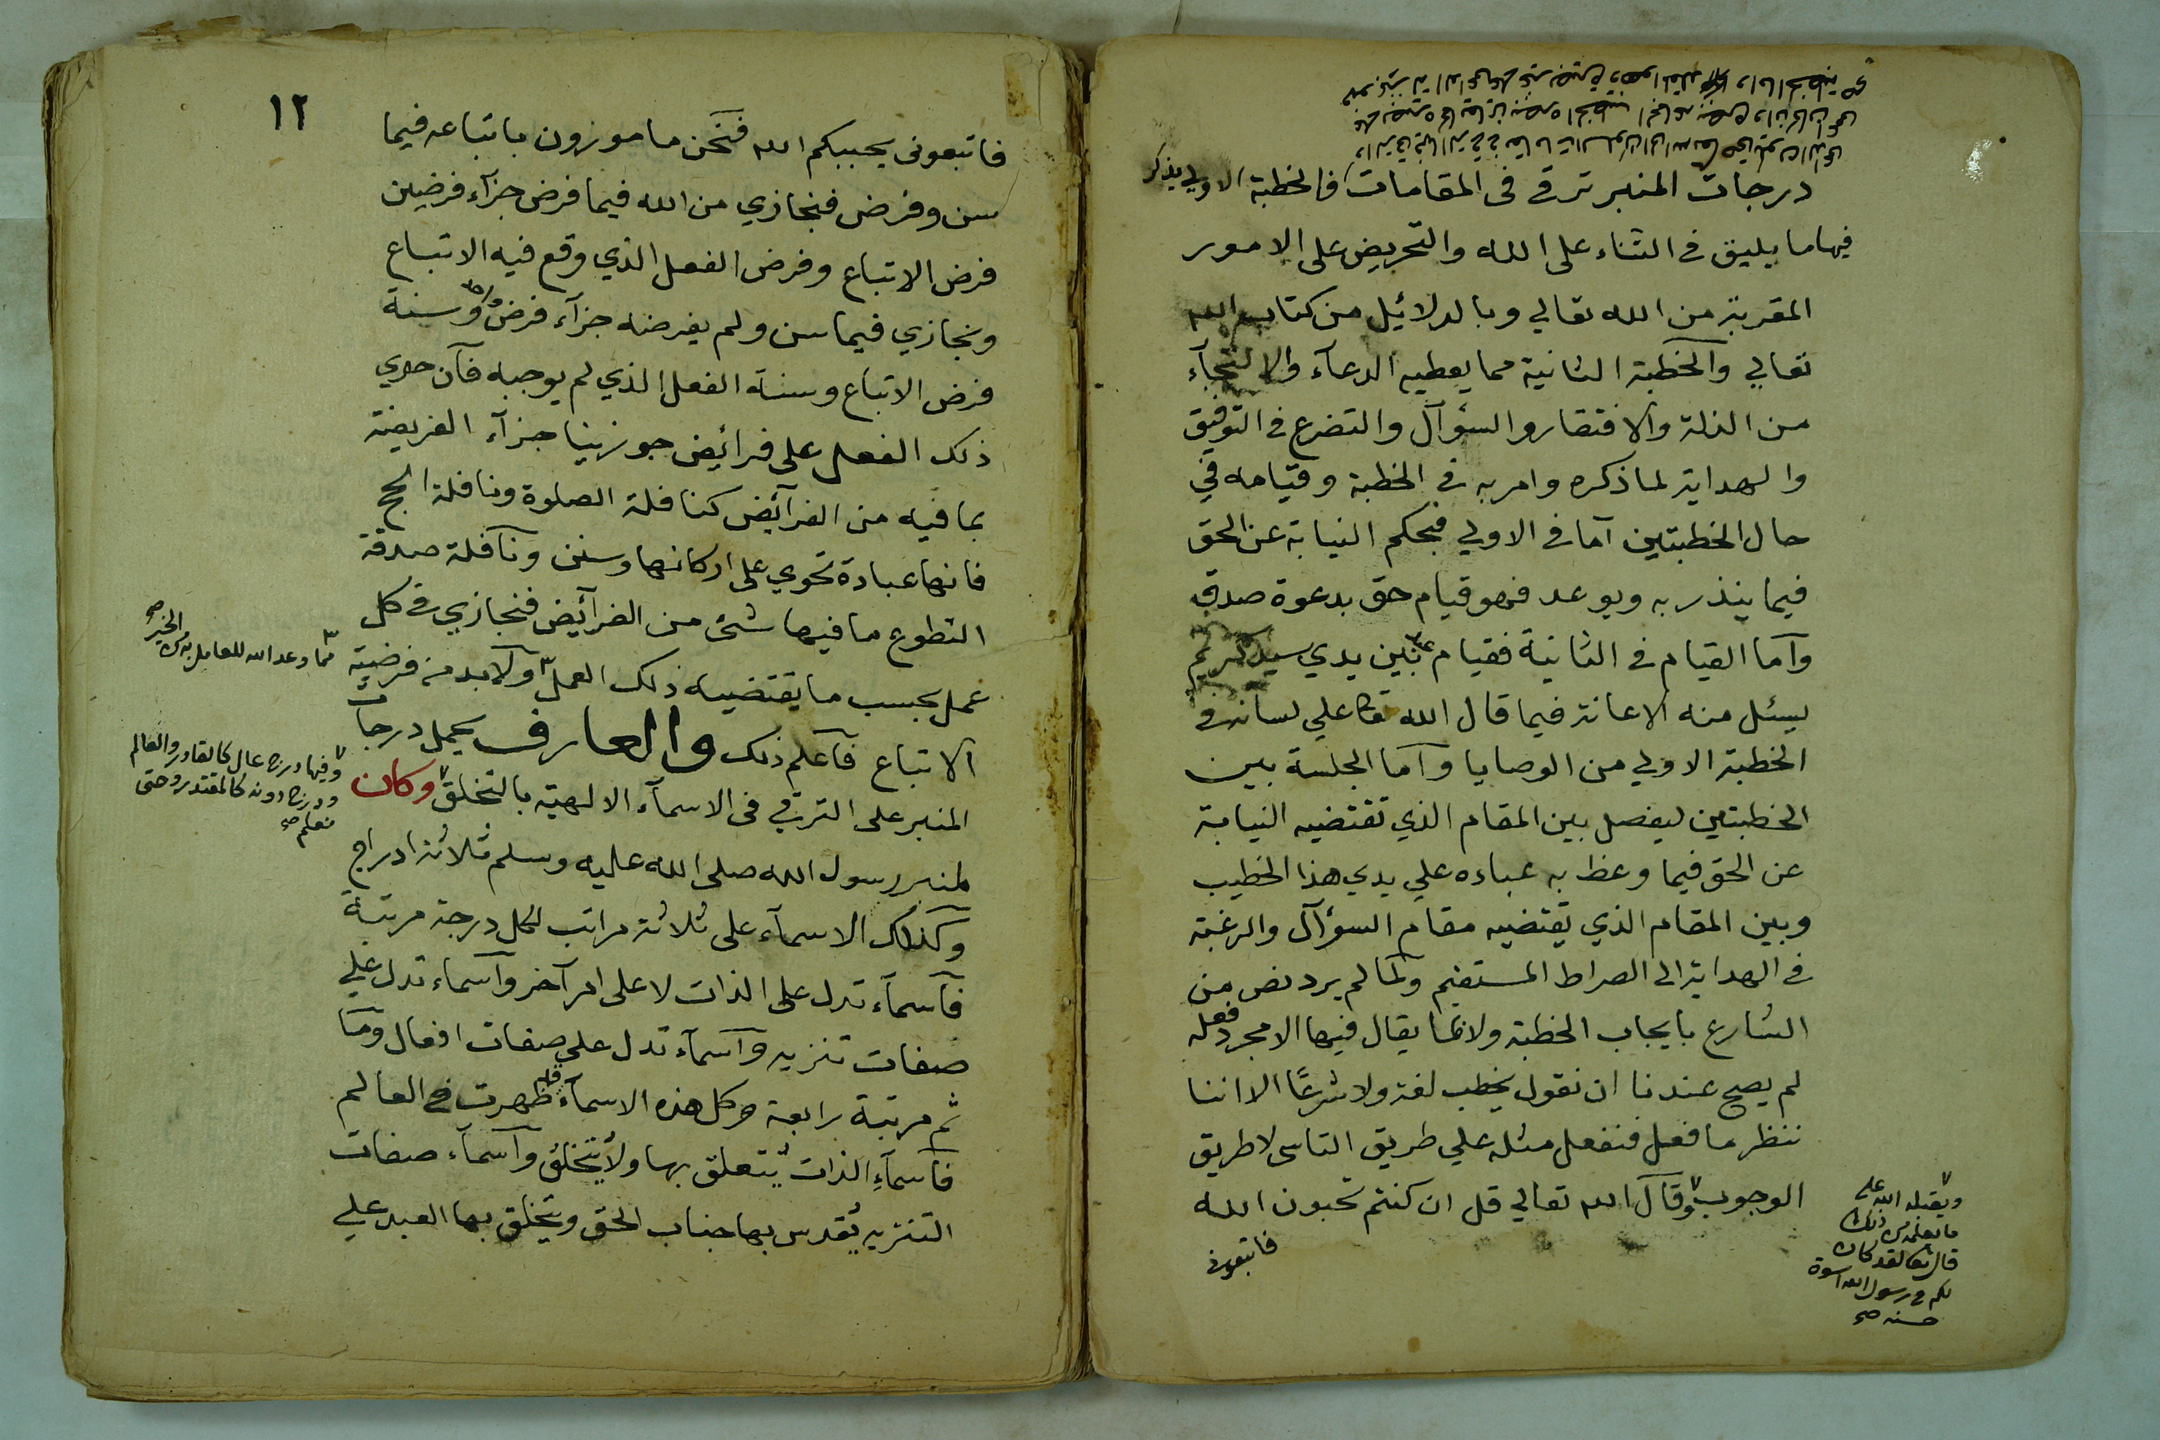 درجات المنبر ترقي في المقامات فالخطبة الاولي يذكر
فيها ما يليق في الثناء على الله والتحريض على الامور
المقربة من الله تعالي وبالدلائيل من كتاب الله
تعالي والخطبة الثانية مما يعطيه الدعآء والالتجآء
من الذلة والافتقار والسؤآل والتضرع في التوفيق
والهداية لما ذكره وامر به في الخطبة وقيامه في
حال الخطبتين آما في الاولي فبحكم النيابة عن الحق
فيما ينذر به ويوعد فهو قيام حق بدعوة صدق
وآما القيام في الثانية فقيام عبد بين يدي سيد كريم
يسئل منه الاعانة فيما قال الله تعا علي لسانه في
الخطبة الاولي من الوصايا وآما الجلسة بين
الخطبتين ليفصل بين المقام الذي تقتضيه النيابة
عن الحق فيما وعظ به عباده علي يدي هذا الخطيب
وبين المقام الذي يقتضيه مقام السؤآل والرغبة
في الهداية الى الصراط المستقيم ولما لم يرد نص من
الشارع بايجاب الخطبة ولا بما يقال فيها الا مجرد فعله
لم يصح عندنا ان نقول يخطب لغة ولا شرعًا الا اننا
ننظر ما فعل فنفعل مثله علي طريق التاسى لا طريق
الوجوب وقآل الله تعالي قل ان كنتم تحبون الله
فاتبعوني
ويقبله الله علي
ما يعلمه من ذلك
قال تعا لقد كان
لكم في رسول الله اسوة
حسنه صح
١٢
فاتبعونى يحببكم الله فنحن مامورون باتباعه فيما
سن وفرض فنجازي من الله فيما فرض جزآء فرضين
فرض الاتباع وفرض الفعل الذي وقع فيه الاتباع
ونجازي فيما سن ولم يفرضه جزآء فرض وسنة
فرض الاتباع وسنة الفعل الذي لم يوجبه فآن حوي
ذلك الفعل على فرائيض جوزينا جزآء الفريضة
بما فيه من الفرآئض كنافلة الصلوة ونافلة الحج
فانها عبادة تحوي على اركانها وسنن ونآفلة صدقة
التطوع ما فيها شئ من الفرآئيض فنجازي في كل
عمل بحسب ما يقتضيه ذلك العمل ولابد من فرضية
مما وعد الله للعامل به من الخير صح
الاتباع فآعلم ذلك والعارف يحمل درجات
المنبر على الترقي في الاسمآء الالهية بالتخلق وكان
وفيها درج عال كالقادر والعالم
ودرج دونه كالمقتدر وحتى
نعلم صح
لمنبر رسول الله صلى الله عليه وسلم ثلاثة ادراج
وكذلك الاسمآء على ثلاثة مراتب لكل درجة مرتبة
فآسمآء تدل على الذات لا على امر آخر وآسماء تدل علي
صفات تنزيه وآسمآء تدل على صفات افعال وما
ثم مرتبة رابعة وكل هذه الاسمآء قد ظهرت في العالم
فآسمآء الذات يتعلق بها ولا يتخلق وآسمآء صفات
التنزيه يُقدس بها جناب الحق ويتخلق بها العبد علي